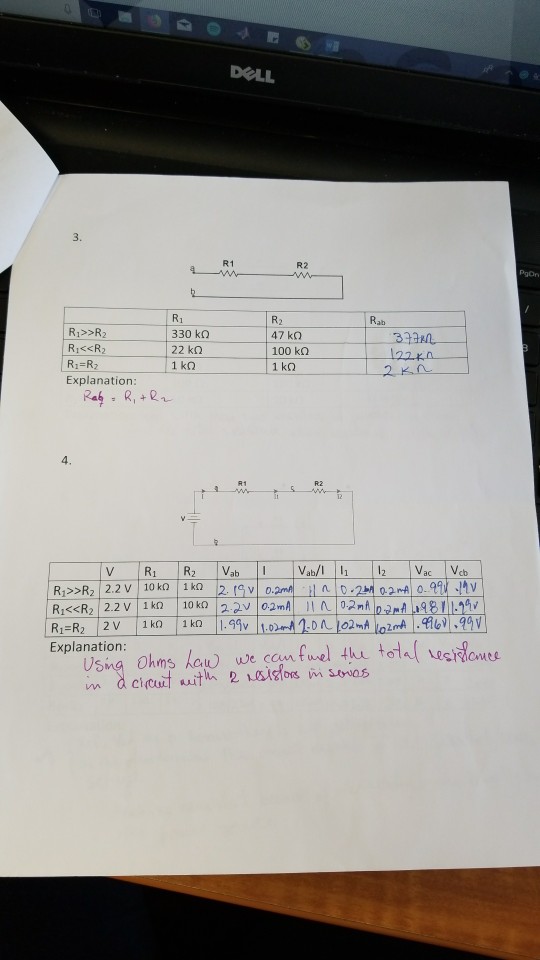 DELL
PgDn
3.
R1 R2
a
b
R₁ R₂ Rab
R₁>>R₂ 330 kΩ 47 kΩ 377kΩ
R₁<<R₂ 22 kΩ 100 kΩ 122kΩ
R₁=R₂ 1 kΩ 1 kΩ 2 kΩ
Explanation:
Rab = R₁ + R₂
4.
R1 R2
I1 I2
V
V R₁ R₂ Vab I Vab/I I₁ I₂ Vac Vcb
R₁>>R₂ 2.2 V 10 kΩ 1 kΩ 2.19v 0.2mA 11 Ω 0.2mA 0.2mA .19V
R₁<<R₂ 2.2 V 1 kΩ 10 kΩ 2.2v 0.2mA 11 Ω 0.2mA 0.2mA
R₁=R₂ 2 V 1 kΩ 1 kΩ 1.99v 1.02mA 2.0Ω 1.02mA 1.02mA .996V .99V
Explanation:
Using Ohms Law we can find the total resistance
in a circuit with 2 resistors in series